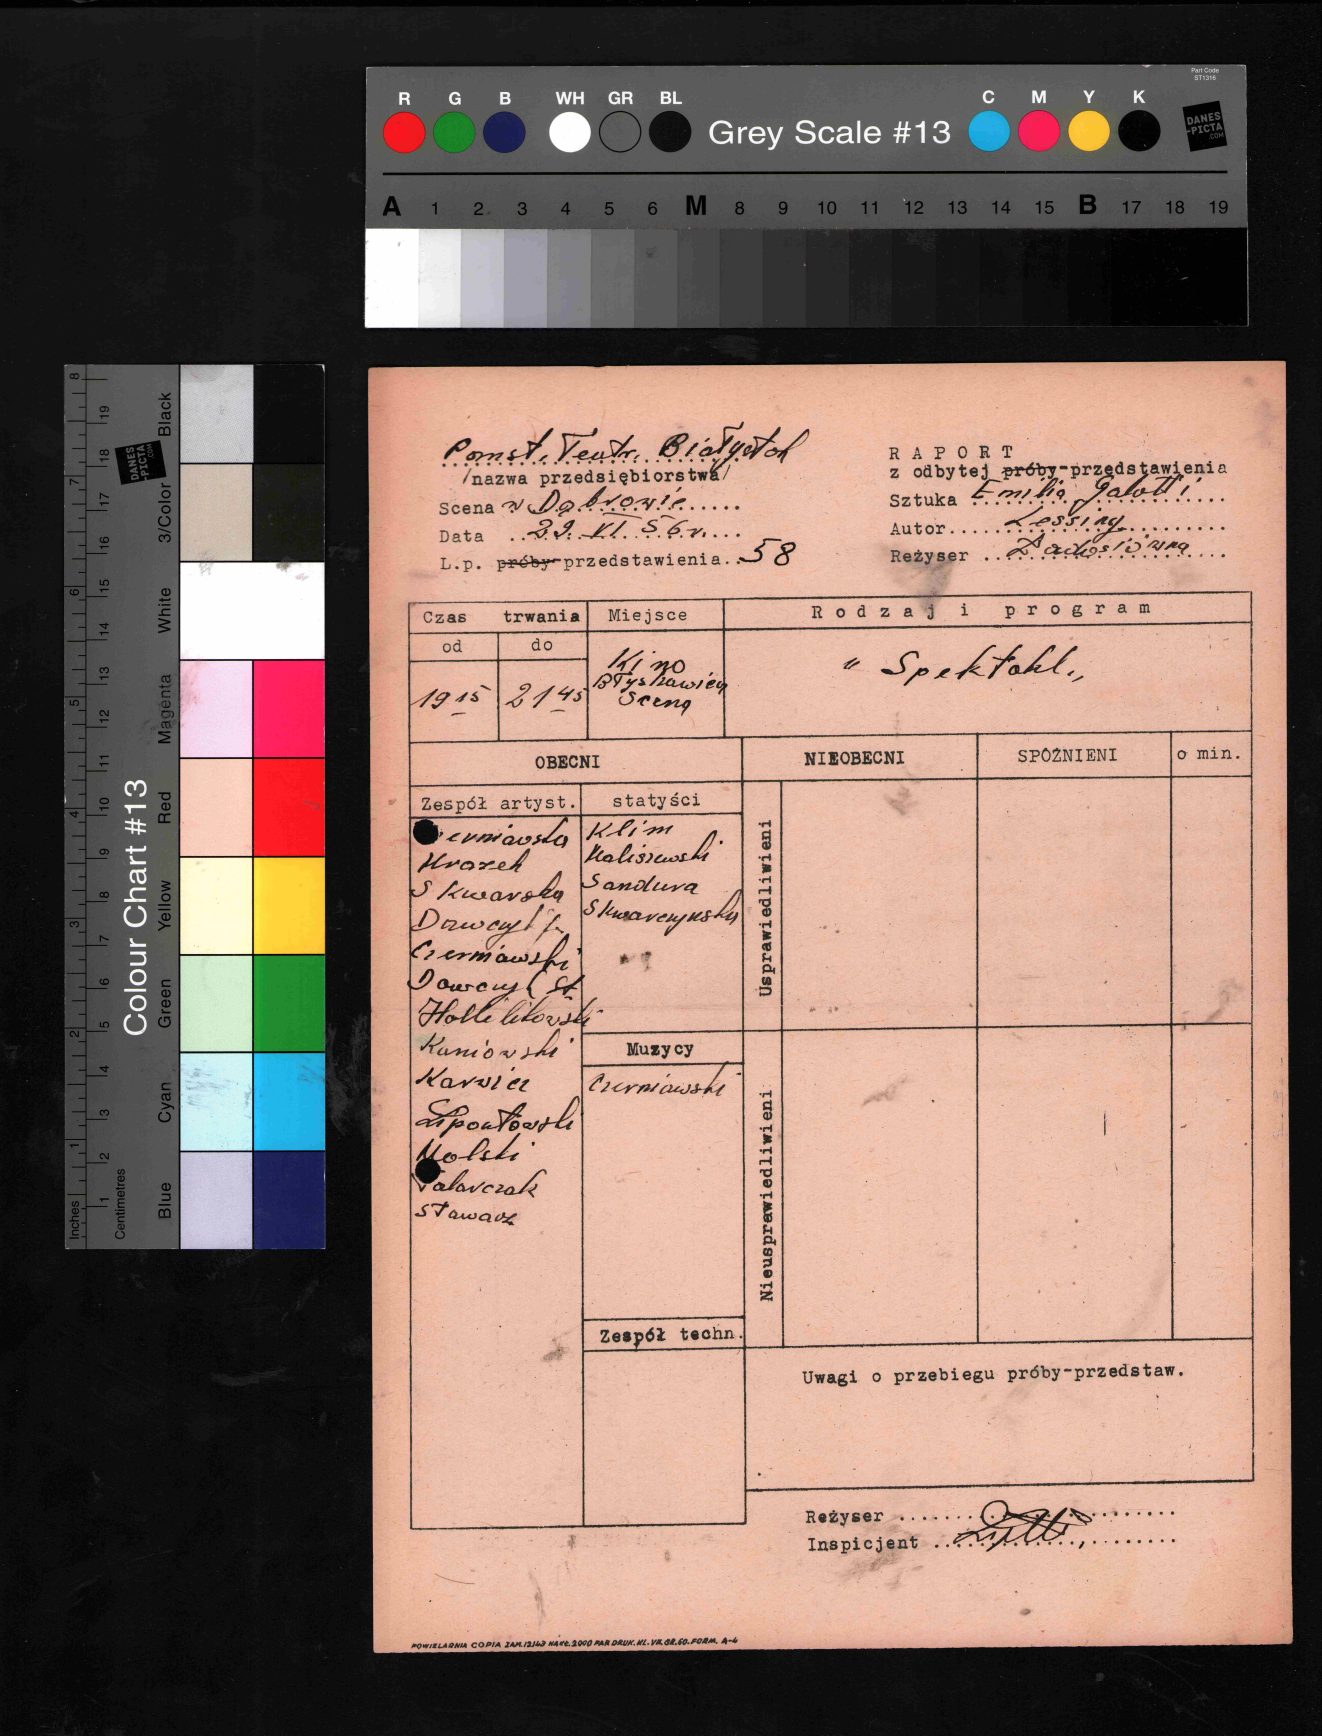 Part Code
ST1316
R G B WH GR BL Grey Scale #13 C M Y K
DANES
-PICTA
.COM
A 1 2 3 4 5 6 M 8 9 10 11 12 13 14 15 B 17 18 19
Colour Chart #13
Blue Cyan Green Yellow Red Magenta White 3/Color Black
Inches 1 2 3 4 5 6 7 8
Centimetres 1 2 3 4 5 6 7 8 9 10 11 12 13 14 15 16 17 18 19
DANES
-PICTA
.COM
Państ. Teatr. Białystok
/nazwa przedsiębiorstwa/
Scena w Dąbrowie
Data 29. VI. 56 r.
L.p. próby-przedstawienia 58
RAPORT
z odbytej próby-przedstawienia
Sztuka Emilia Galotti
Autor Lessing
Reżyser
Czas trwania
od do
19 15 21 45
Miejsce
Kino
Scena
Rodzaj i program
" Spektakl "
OBECNI NIEOBECNI SPÓŹNIENI o min.
Zespół artyst.
erniawska
Mrazek
Skwarska
Dawczyl
Czerniawski
Dawczyl St.
Kuniowski
Karwica
Molski
Stawarz
statyści
Klim
Kaliszewski
Sandura
Skwarczyński
Muzycy
Czerniawski
Zespół techn.
Usprawiedliwieni
Nieusprawiedliwieni
Uwagi o przebiegu próby-przedstaw.
Reżyser
Inspicjent
POWIELARNIA COPIA ZAM. 12143 NAKŁ. 2000 PAR DRUK. KL. VII. GR. 60. FORM. A-4